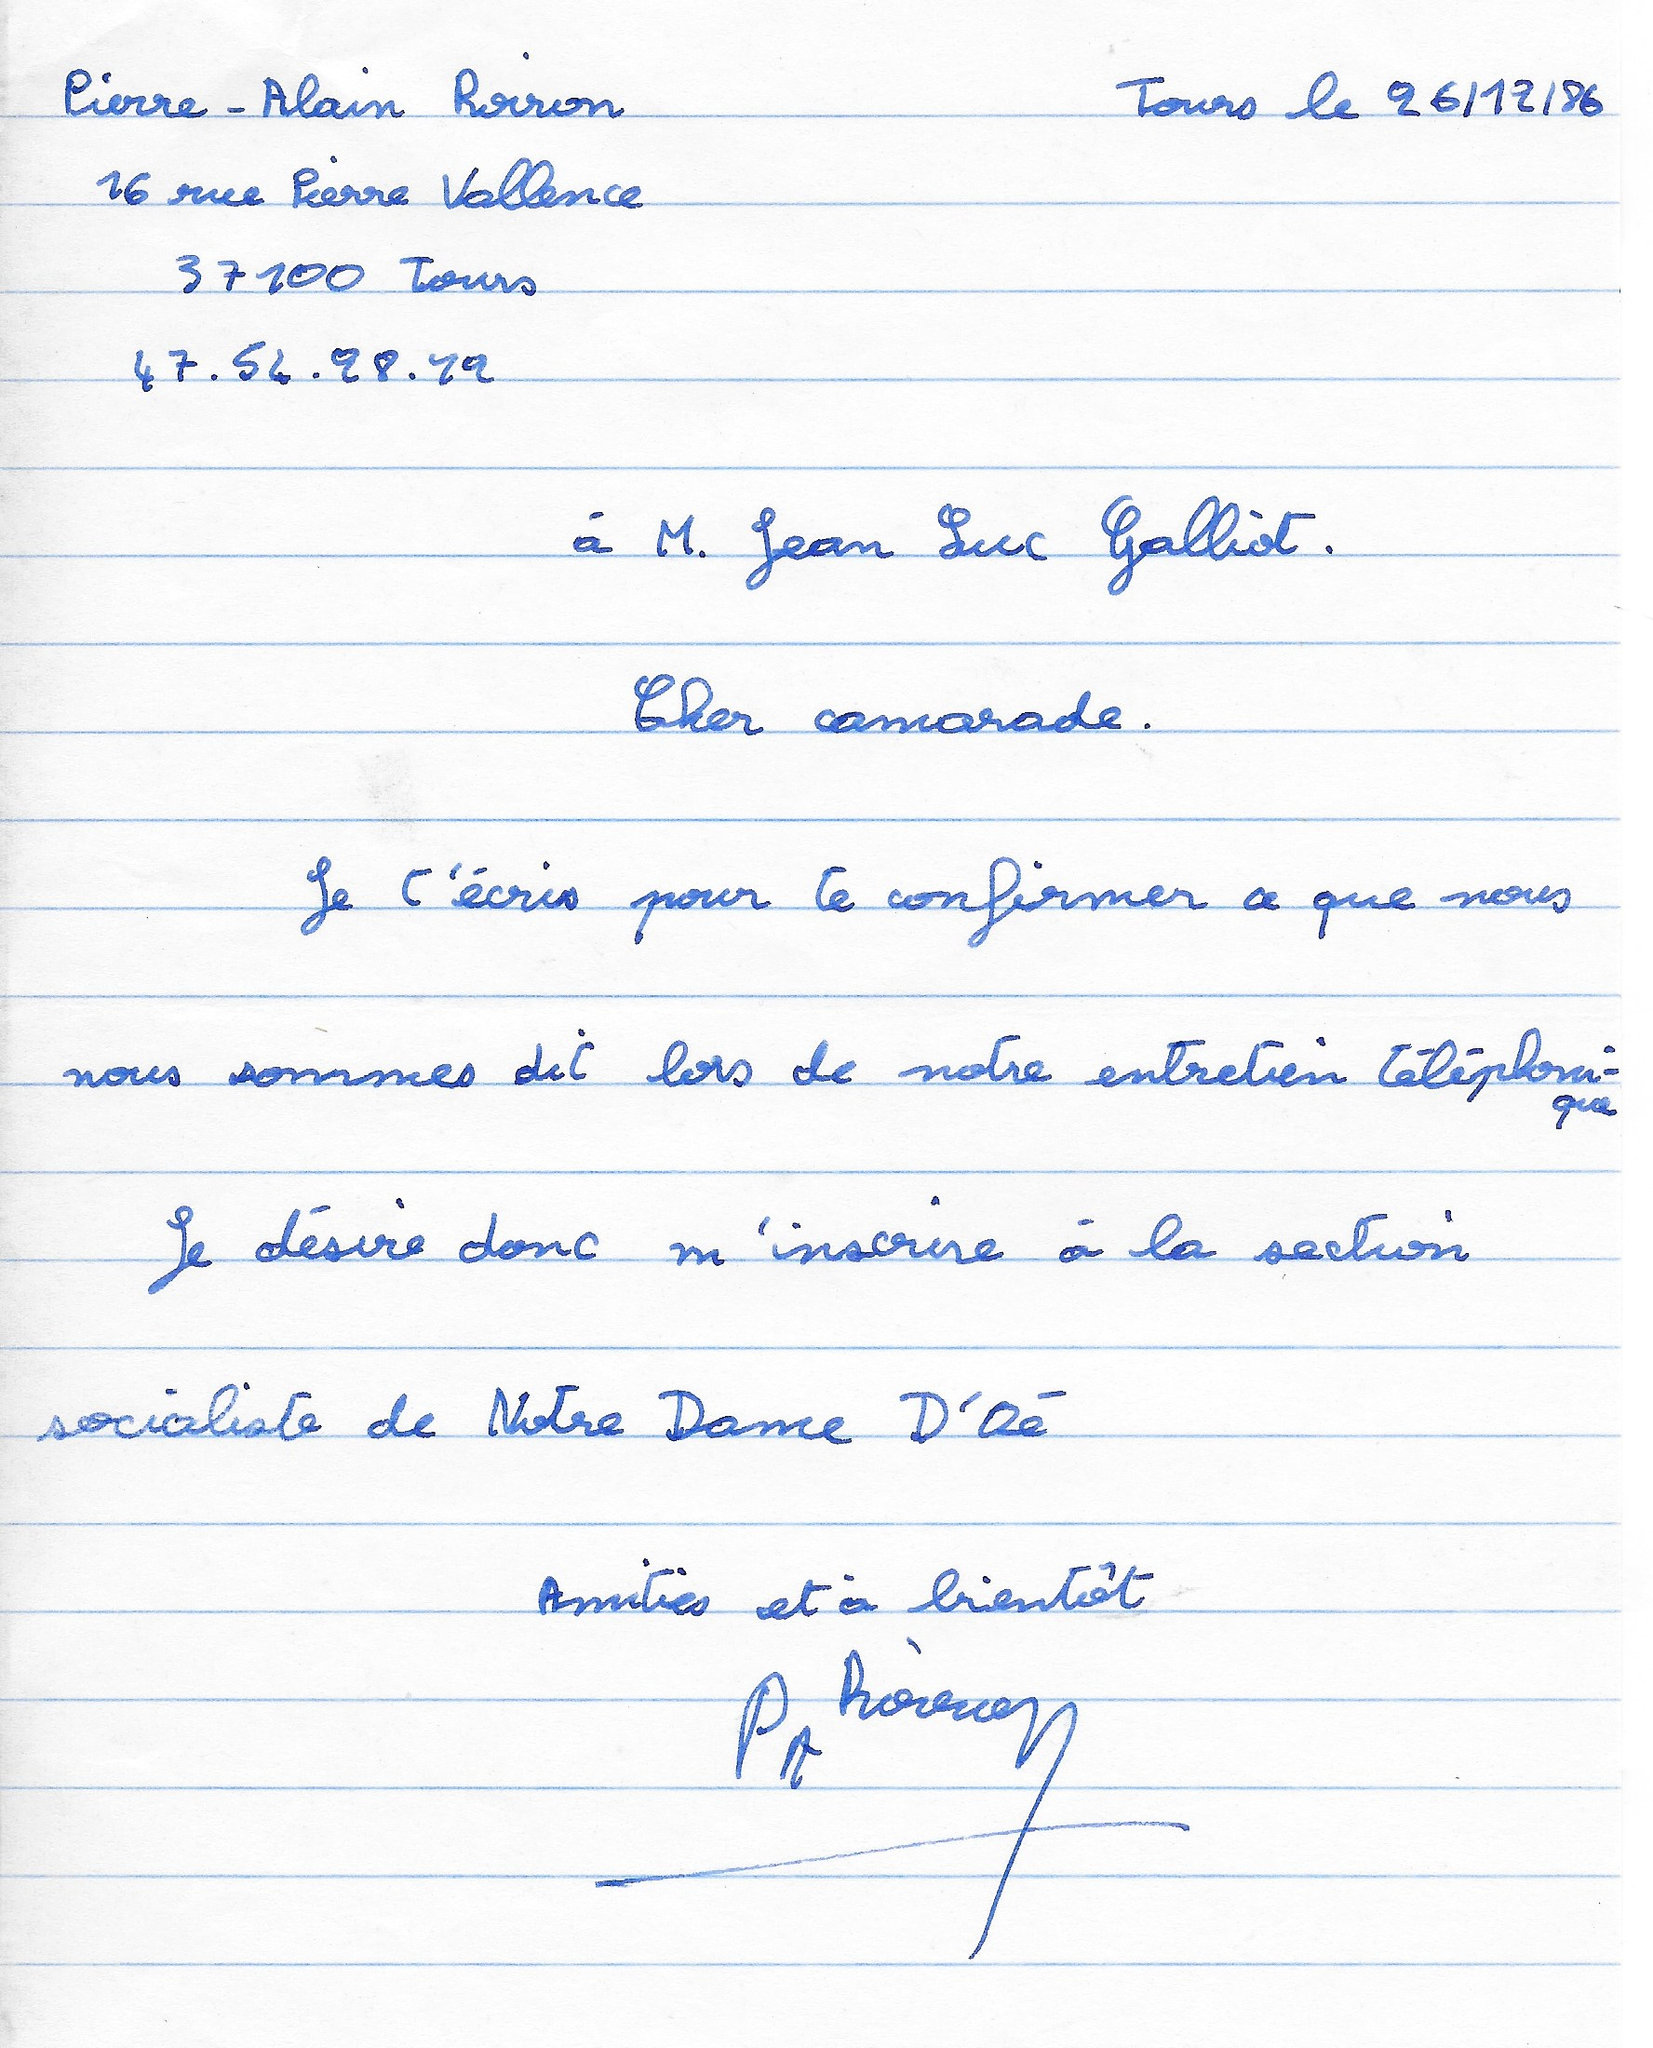 Pierre-Alain Roiron
Tours le 26/12/86
16 rue Pierre Vallence
37100 Tours
47.54.28.12
à M. Jean Luc Galliot.
Cher camarade.
Je t'écris pour te confirmer ce que nous
nous sommes dit lors de notre entretien téléphoni-
que
Je désire donc m'inscrire à la section
socialiste de Notre Dame D'Oé
Amitiés et à bientôt
PA Roiron